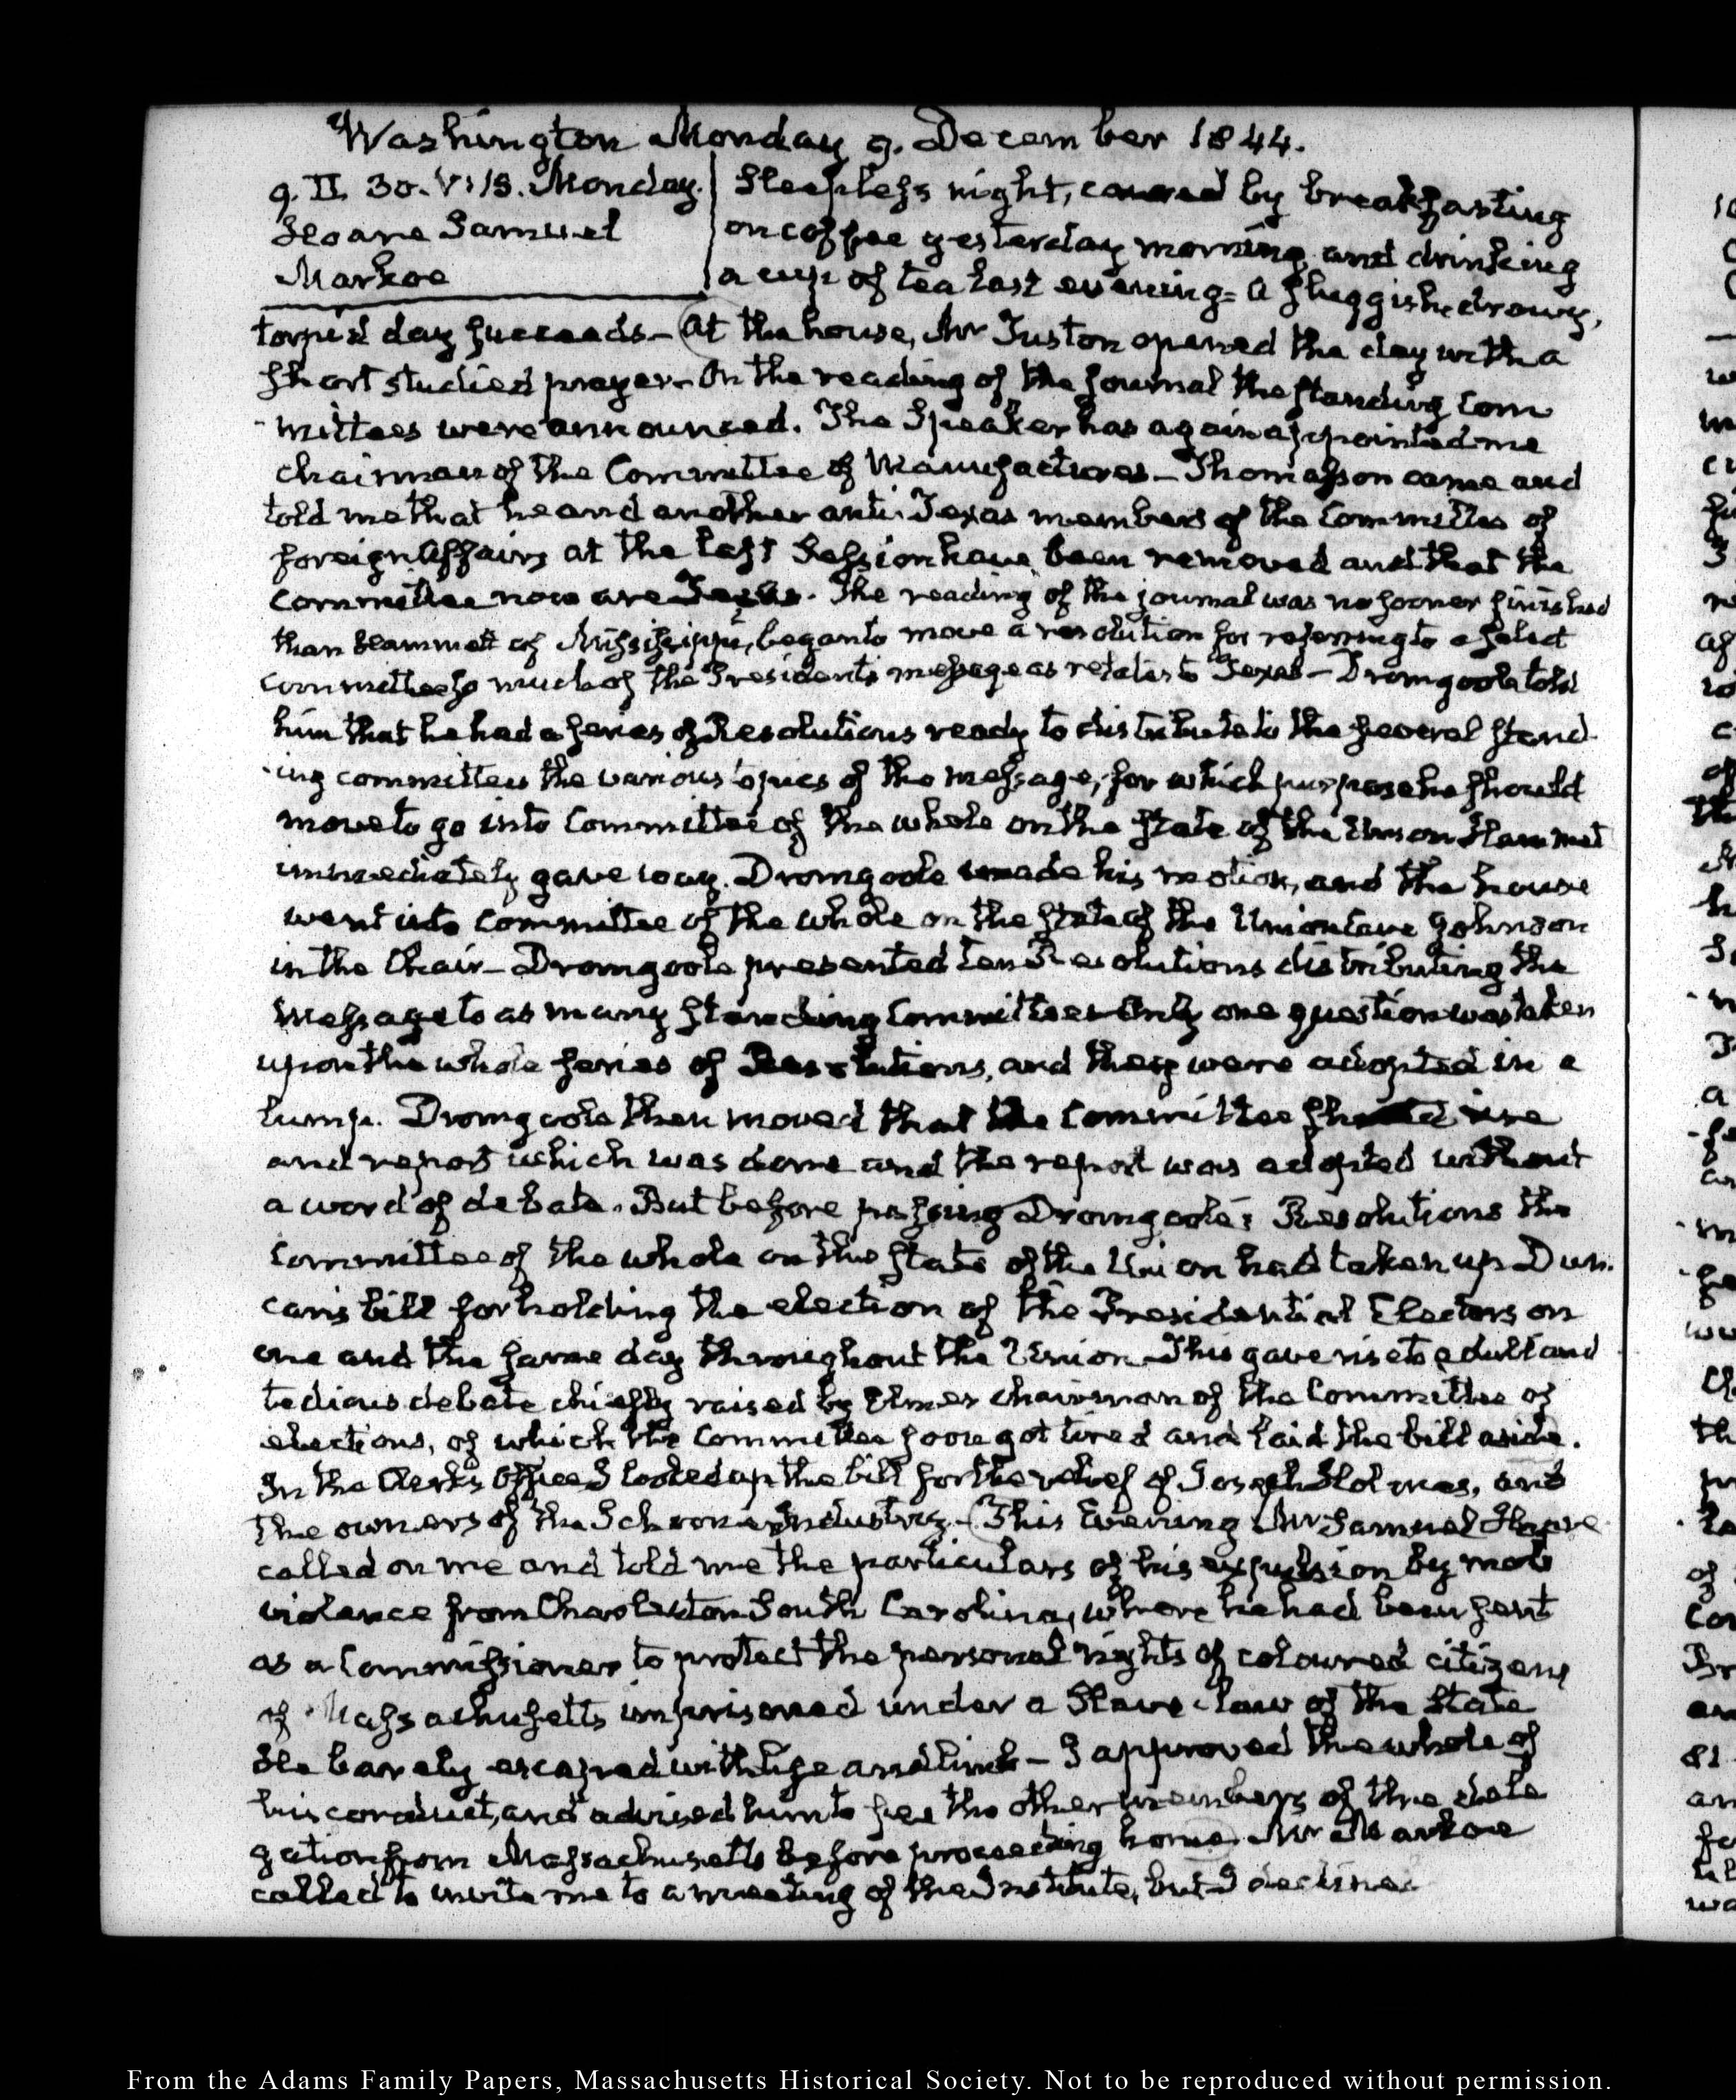 Washington Monday 9. December 1844.
9. II. 30. V:15. Monday.
Hoare Samuel
Markoe
Sleepless night, caused by breakfasting
on coffee yesterday morning, and drinking
a cup of tea last evening = a sluggish drowsy,
torpid day succeeds — At the house, Mr Tuston opened the day with a
short studied prayer — On the reading of the journal the standing Com
-mittees were announced. The Speaker has again appointed me
chairman of the Committee of Manufactures — Thomasson came and
told me that he and another anti-Texas members of the Committee of
foreign Affairs at the last Session have been removed and that the
Committee now are Texas. The reading of the journal was no sooner finished
than Hammett of Mississippi, began to move a resolution for referring to a select
committee so much of the Presidents message as relates to Texas — Dromgoole told
him that he had a series of Resolutions ready to distribute to the several stand-
-ing committees the various topics of the message, for which purpose he should
move to go into Committee of the whole on the State of the Union Hammet
immediately gave way. Dromgoole made his motion, and the house
went into Committee of the whole on the State of the Union Cave Johnson
in the Chair — Dromgoole presented ten Resolutions distributing the
Message to as many standing Committees Only one question was taken
upon the whole series of Resolutions, and they were adopted in a
lump. Dromgoole then moved that the Committee should rise
and report which was done and the report was adopted without
a word of debate. But before passing Dromgoole's Resolutions the
Committee of the whole on the state of the Union had taken up Dun-
can's bill for holding the election of the Presidential Electors on
one and the same day throughout the Union — This gave rise to a dull and
tedious debate chiefly raised by Elmer chairman of the Committee of
elections, of which the Committee soon got tired and laid the bill aside.
In the Clerk's Office I looked up the bill for the relief of Joseph Holmes, and
the owners of the Schooner Industry. — This Evening Mr Samuel Hoare
called on me and told me the particulars of his expulsion by mob
violence from Charleston South Carolina, where he had been sent
as a Commissioner to protect the personal rights of coloured citizens
of Massachusetts imprisoned under a Slave-law of the State
He barely escaped with life and limb — I approved the whole of
his conduct, and advised him to see the other members of the dele
gation from Massachusetts before proceeding home. Mr Markoe
called to invite me to a meeting of the Institute, but I declined
From the Adams Family Papers, Massachusetts Historical Society. Not to be reproduced without permission.